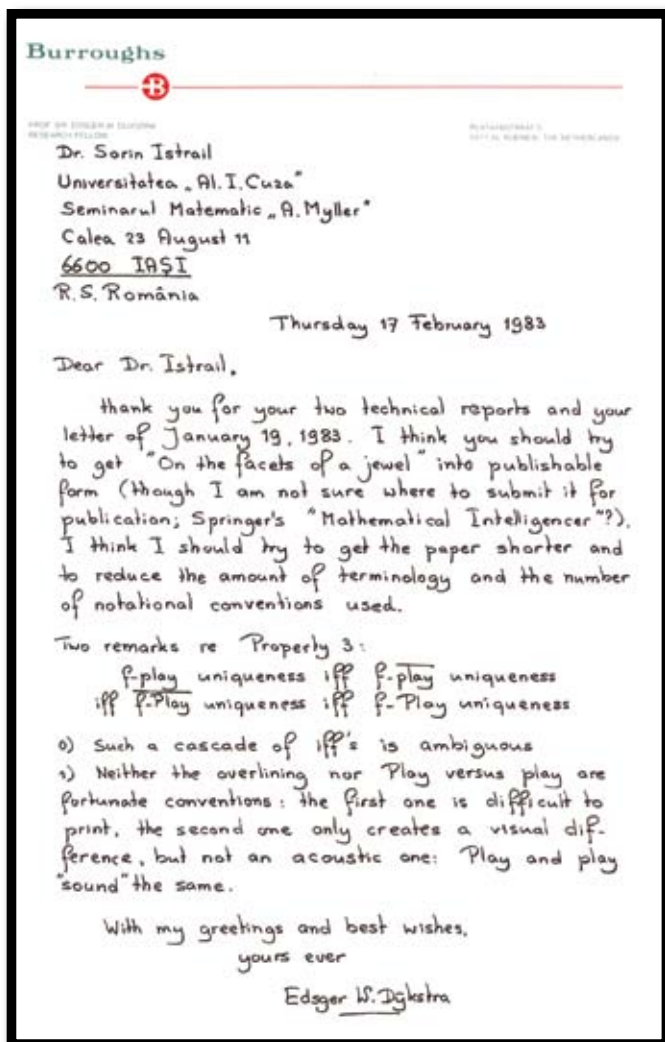 Burroughs
B
PROF. DR. EDSGER W. DIJKSTRA
RESEARCH FELLOW
PLATAANSTRAAT 5
5671 AL NUENEN, THE NETHERLANDS
Dr. Sorin Istrail
Universitatea „Al. I. Cuza"
Seminarul Matematic „A. Myller"
Calea 23 August 11
6600 IAŞI
R.S. România
Thursday 17 February 1983
Dear Dr. Istrail,
thank you for your two technical reports and your
letter of January 19, 1983. I think you should try
to get "On the facets of a jewel" into publishable
form (though I am not sure where to submit it for
publication; Springer's "Mathematical Intelligencer"?).
I think I should try to get the paper shorter and
to reduce the amount of terminology and the number
of notational conventions used.
Two remarks re Property 3:
f-play uniqueness iff f-p̅l̅a̅y̅ uniqueness
iff f̅-̅P̅l̅a̅y̅ uniqueness iff f-Play uniqueness
0) Such a cascade of iff's is ambiguous
1) Neither the overlining nor Play versus play are
fortunate conventions: the first one is difficult to
print, the second one only creates a visual dif-
ference, but not an acoustic one: Play and play
"sound" the same.
With my greetings and best wishes,
yours ever
Edsger W. Dijkstra